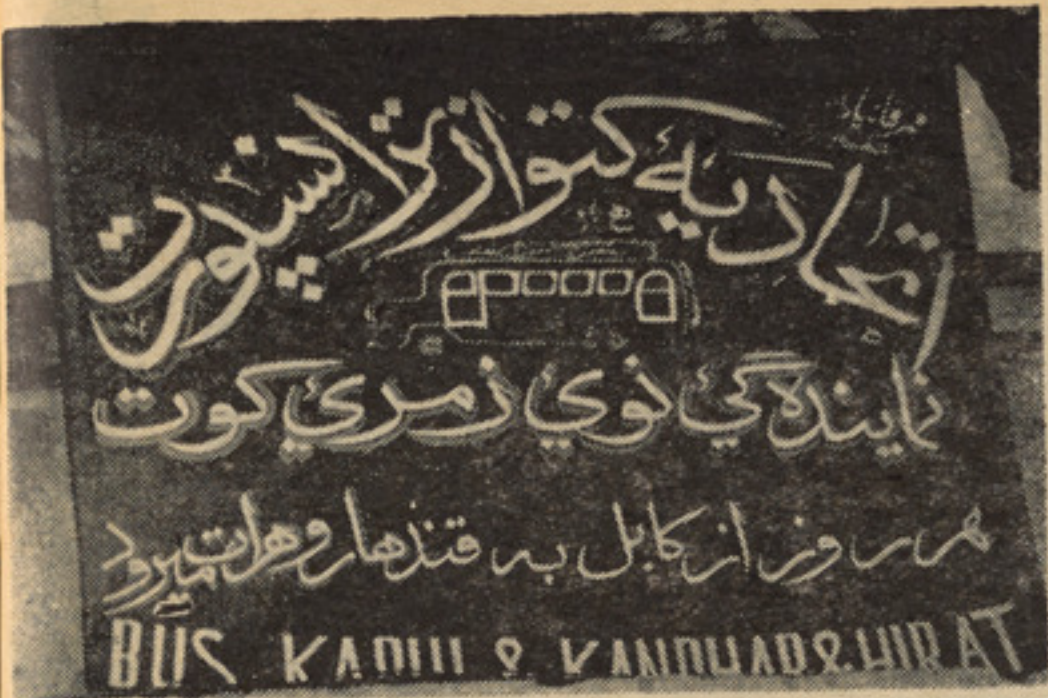 اتحادیهٔ کتواز ترانسپورت
نماینده گئ نوي زمرئ کوت
هر روز از کابل به قندهار و هرات میرود
BUS KABUL & KANDHAR & HIRAT